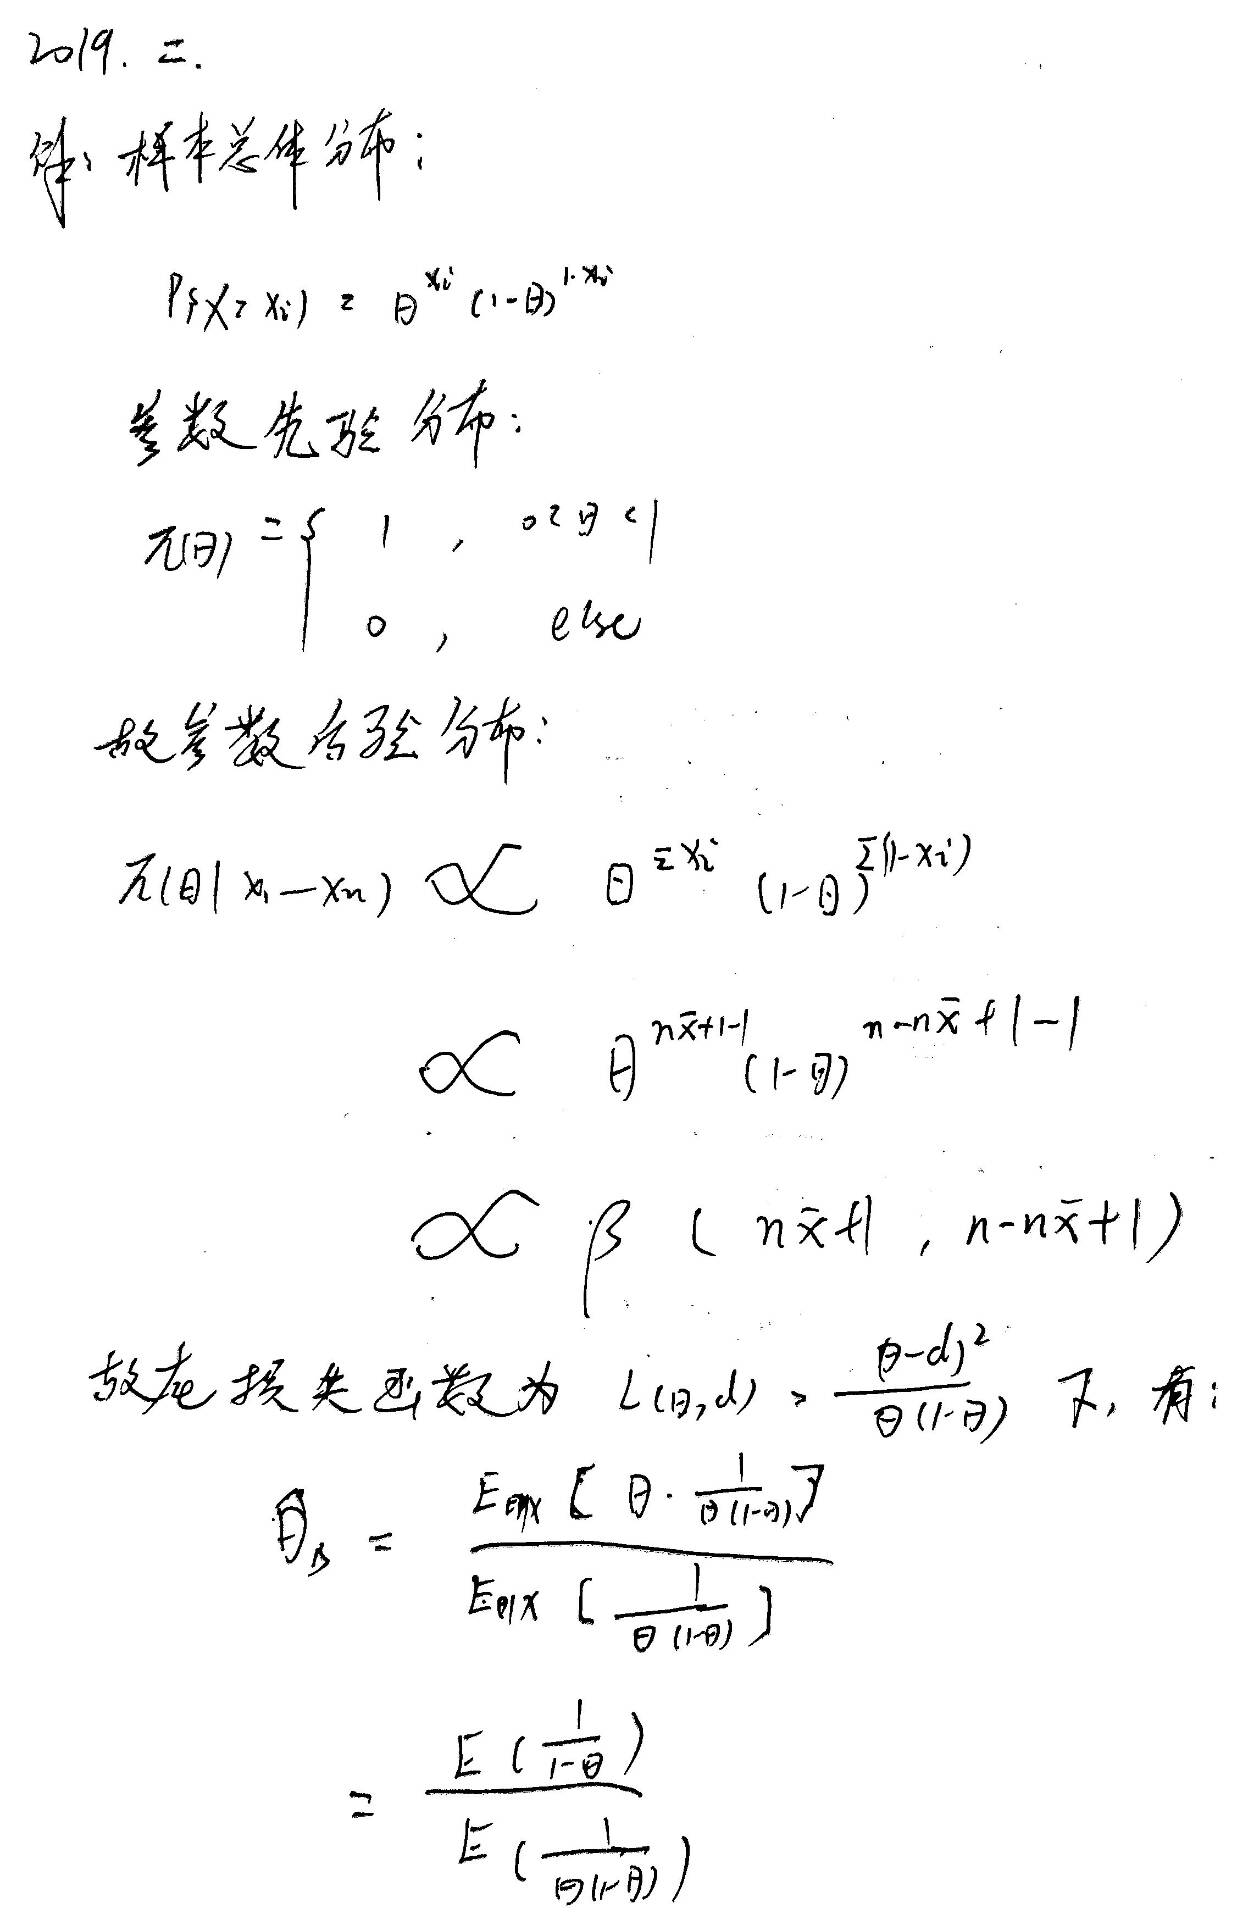 2019. 二.
解: 样本总体分布:
P{X=xi} = θ^{xi} (1-θ)^{1-xi}
参数先验分布:
π(θ) = { 1 , 0<θ<1
0 , else
故参数后验分布:
π(θ|x1—xn) ∝ θ^{Σxi} (1-θ)^{Σ(1-xi)}
∝ θ^{nx̄+1-1} (1-θ)^{n-nx̄+1-1}
∝ β ( nx̄+1 , n-nx̄+1)
故在损失函数为 L(θ,d) = \frac{(θ-d)^2}{θ(1-θ)} 下, 有:
θ̂_B = \frac{E_{θ|x} [ θ· \frac{1}{θ(1-θ)} ]}{E_{θ|x} [ \frac{1}{θ(1-θ)} ]}
= \frac{E ( \frac{1}{1-θ} )}{E ( \frac{1}{θ(1-θ)} )}